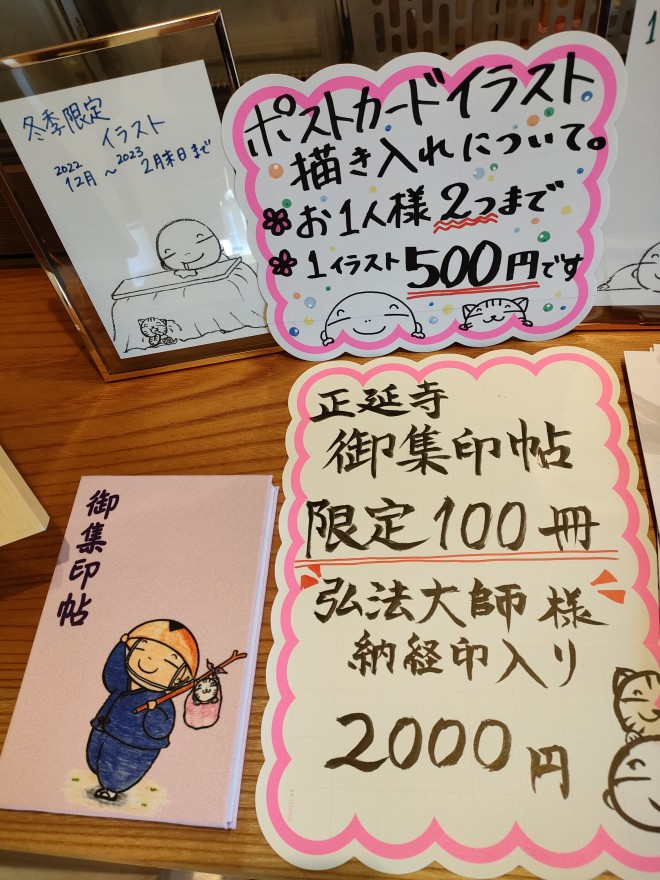 冬季限定
イラスト
2022 2023
12月～2月末日まで
ポストカードイラスト
描き入れについて。
お1人様2つまで
1イラスト500円です
正延寺
御集印帖
限定100冊
弘法大師様
納経印入り
2000円
御集印帖